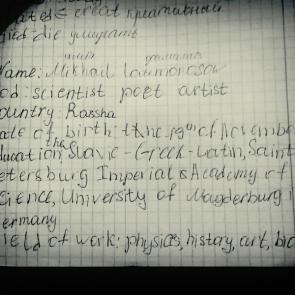 ated = creat креативный
ied die умирать
Name: Mikhail Lomonosow
od: scientist poet artist
ountry: Rassha
ate of birth: the of November
ducation: the Slavic-Greek-Latin, Saint
etersburg Imperial Academy of
cience, University of Magderburg i
ermany
ield of work: physics, history, art, bio